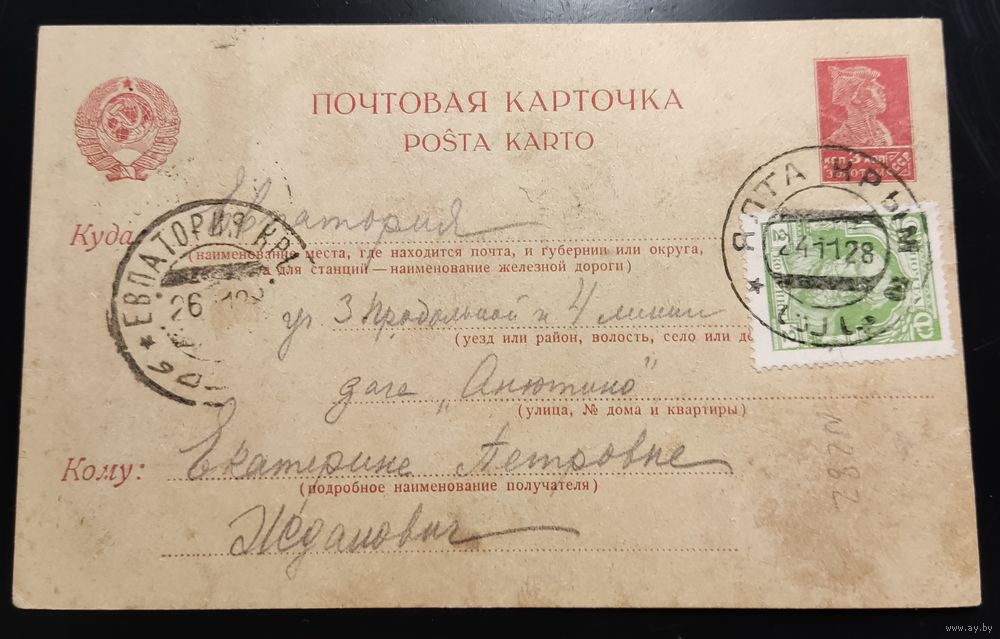 ПОЧТОВАЯ КАРТОЧКА
POŜTA KARTO
КОП 3 КОП
ЗОЛОТОМ
Куда Евпатория
(наименование места, где находится почта, и губернии или округа,
а для станций—наименование железной дороги)
ЕВПАТОРИЯ КР
26
ЯЛТА КРЫМ
24 11 28
уг 3 Продольной и 4 линии
(уезд или район, волость, село или де
дача „Анютино"
(улица, № дома и квартиры)
Кому: Екатерине Петровне
(подробное наименование получателя)
Жданович
N282
www.ay.by